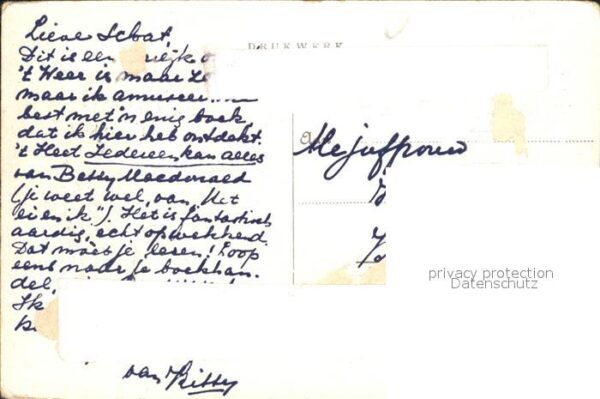 Lieve Schat,
DRUKWERK
Dit is een
't Weer is maar
maar ik amuseer me
best met 'n enig boek
dat ik hier heb ontdekt.
't Heet Iedereen kan alles
van Betty Macdonald
(je weet wel, van „Het
ei en ik"). Het is fantastisch
aardig, echt opwekkend.
Dat móét je lezen! Loop
eens naar je boekhan-
del,
Ik
Mejuffrouw
privacy protection
Datenschutz
van Kitty